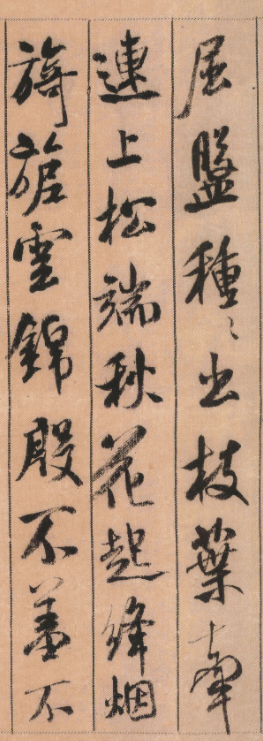 屈盤種〻出枝葉牽
連上松端秋花起絳烟
旖旎雲錦殷不羞不